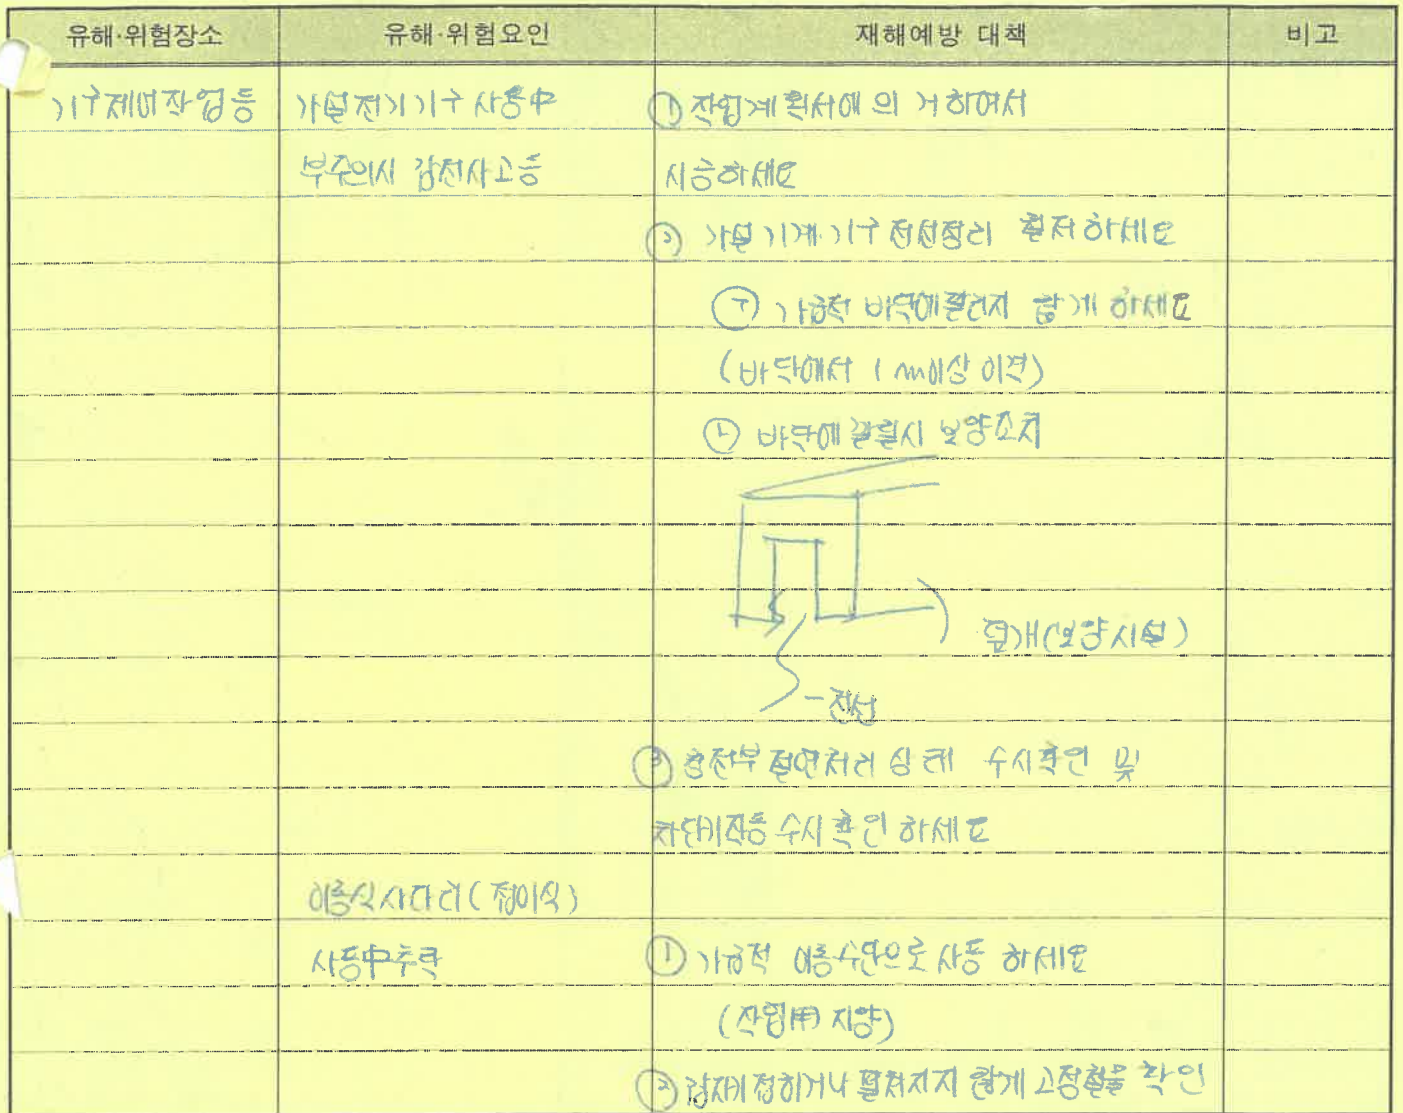 유해·위험장소 유해·위험요인 재해예방 대책 비고
기구제어작업등 가설전기기구 사용中 ① 작업계획서에 의거하여서
부주의시 감전사고등 시공하세요
② 가설기계·기구 전선정리 철저하세요
㉠ 가급적 바닥에 깔리지 않게 하세요
(바닥에서 1m이상 이격)
㉡ 바닥에 깔릴시 보양조치
덮개(보양시설)
전선
③ 충전부 절연처리 상태 수시확인 및
차단기작동 수시확인 하세요
이동식사다리(접이식)
사용中추락 ① 가급적 이동수단으로 사용 하세요
(작업用 지양)
② 갑자기 접히거나 펼쳐지지 않게 고정철물 확인